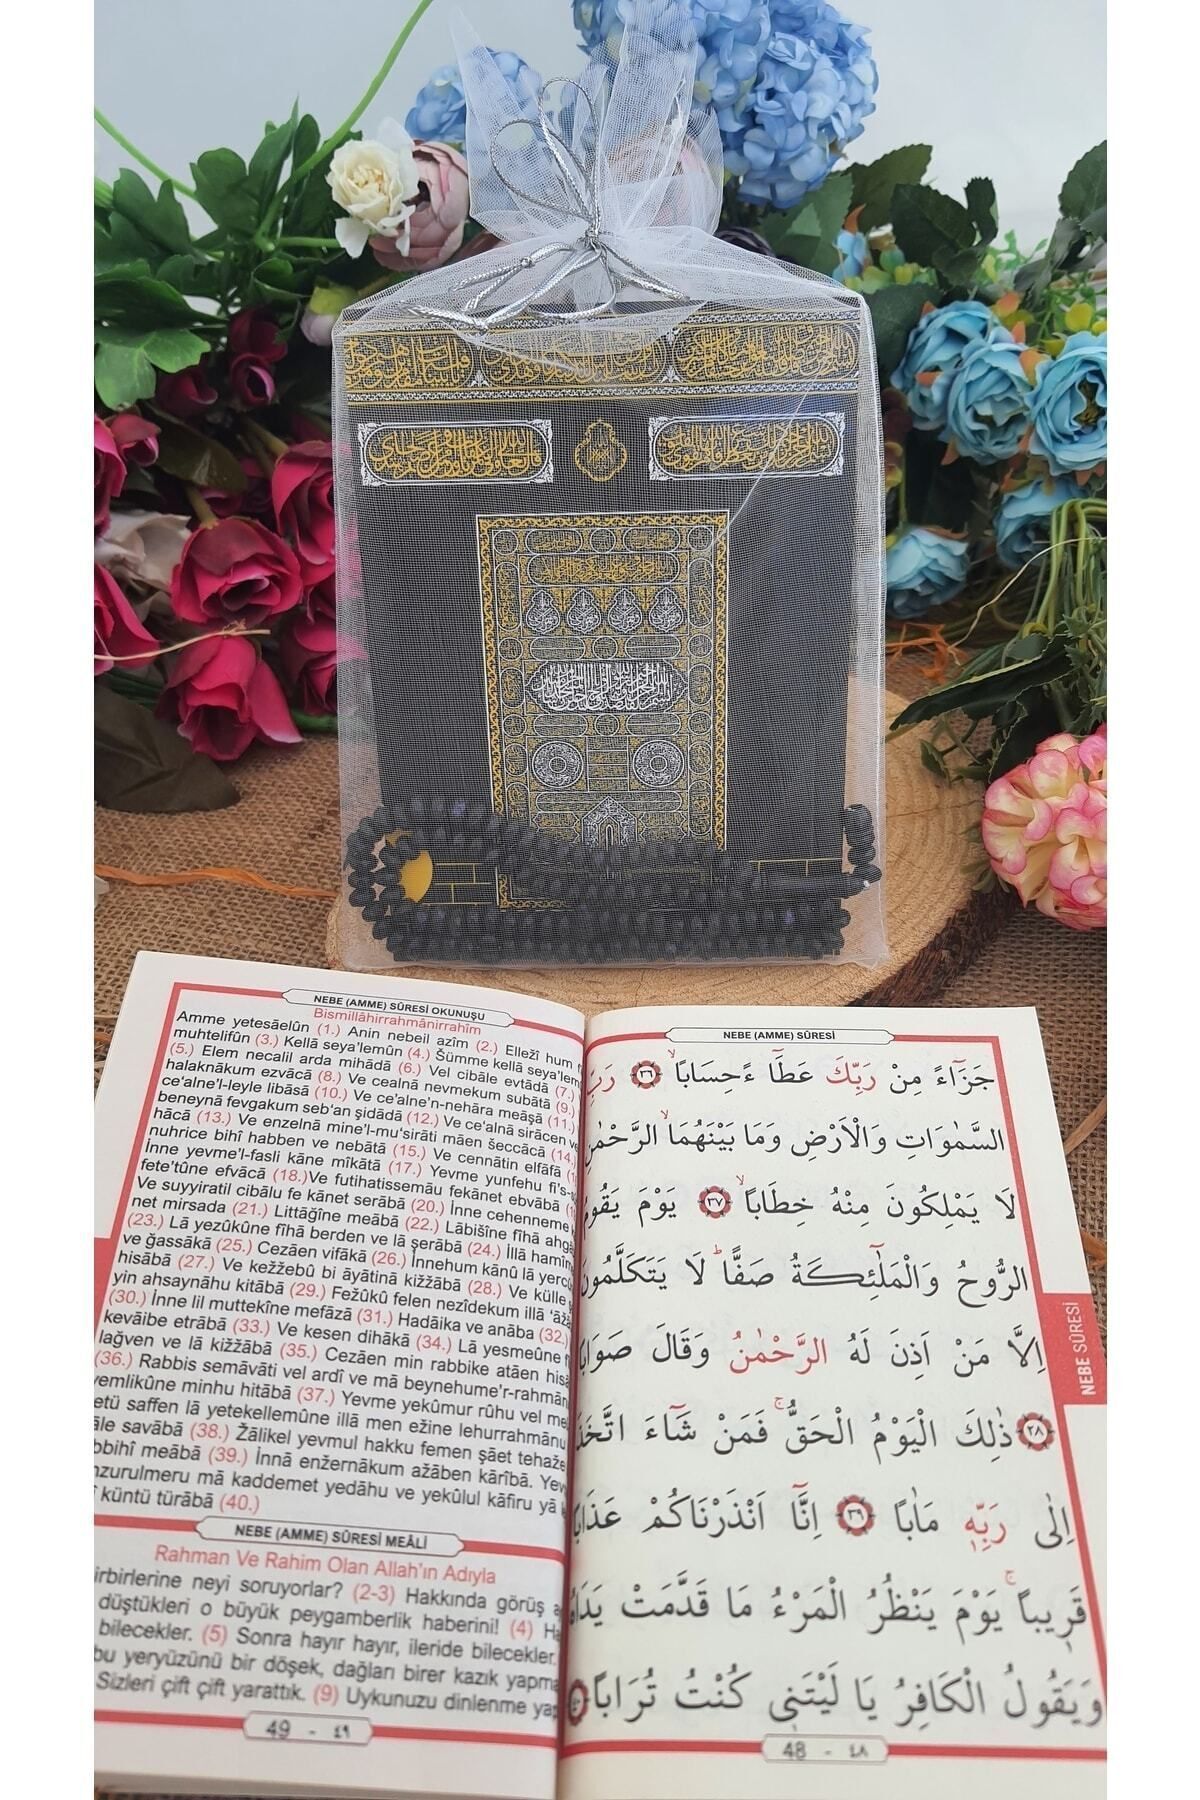 NEBE (AMME) SÛRESİ OKUNUŞU
Bismillâhirrahmânirrahîm
Amme yetesāelûn (1.) Anin nebeil azîm (2.) Elležî hum
muhtelifûn (3.) Kellā seya'lemûn (4.) Šümme kellā seya'lem
(5.) Elem necalil arda mihādā (6.) Vel cibāle evtādā (7.)
halaknākum ezvācā (8.) Ve cealnā nevmekum subātā (9.)
ce'alne'l-leyle libāsā (10.) Ve ce'alne'n-nehāra meāşā (11.)
beneynā fevgakum seb'an şidādā (12.) Ve ce'alnā sirācen
hācā (13.) Ve enzelnā mine'l-mu'sirāti māen šeccācā (14.
nuhrice bihî habben ve nebātā (15.) Ve cennātin elfāfā
İnne yevme'l-fasli kāne mîkātā (17.) Yevme yunfehu fi's-
fete'tûne efvācā (18.)Ve futihatissemāu fekānet ebvābā
Ve suyyiratil cibālu fe kānet serābā (20.) İnne cehenneme
net mirsada (21.) Littāğîne meābā (22.) Lābišîne fîhā
(23.) Lā yezûkûne fîhā berden ve lā şerābā (24.) İllā hamîm
ve ğassākā (25.) Cezāen vifākā (26.) İnnehum kānû lā
hisābā (27.) Ve kežžebû bi āyātinā kižžābā (28.) Ve külle
yin ahsaynāhu kitābā (29.) Fežûkû felen nezîdekum illā
(30.) İnne lil muttekîne mefāzā (31.) Hadāika ve anāba (32.)
kevāibe etrābā (33.) Ve kesen dihākā (34.) Lā yesmeûne
lağven ve lā kižžābā (35.) Cezāen min rabbike atāen
(36.) Rabbis semāvāti vel ardî ve mā beynehume'r-rahmān
yemlikûne minhu hitābā (37.) Yevme yekûmur rûhu vel
saffen lā yetekellemûne illā men ežine lehurrahmānu
savābā (38.) Žālikel yevmul hakku femen şāet
meābā (39.) İnnā enžernākum ažāben kārîbā.
mā kaddemet yedāhu ve yekûlul kāfiru yā
küntü türābā (40.)
NEBE (AMME) SÛRESİ MEÂLİ
Rahman Ve Rahim Olan Allah'ın Adıyla
irbirlerine neyi soruyorlar? (2-3) Hakkında görüş
düştükleri o büyük peygamberlik haberini! (4)
bilecekler. (5) Sonra hayır hayır, ileride bilecekler.
bu yeryüzünü bir döşek, dağları birer kazık
Sizleri çift çift yarattık. (9) Uykunuzu dinlenme
49 - ٤٩
NEBE (AMME) SÛRESİ
جَزَاءً مِنْ رَبِّكَ عَطَاءً حِسَابًا ﴿٣٦﴾
السَّمٰوَاتِ وَالْاَرْضِ وَمَا بَيْنَهُمَا الرَّحْمٰنِ
لَا يَمْلِكُونَ مِنْهُ خِطَابًا ﴿٣٧﴾ يَوْمَ يَقُومُ
الرُّوحُ وَالْمَلٰٓئِكَةُ صَفًّا لَا يَتَكَلَّمُونَ
اِلَّا مَنْ اَذِنَ لَهُ الرَّحْمٰنُ وَقَالَ صَوَابًا
﴿٣٨﴾ ذٰلِكَ الْيَوْمُ الْحَقُّ فَمَنْ شَاءَ اتَّخَذَ
اِلٰى رَبِّهِ مَاٰبًا ﴿٣٩﴾ اِنَّا اَنْذَرْنَاكُمْ عَذَابًا
قَرِيبًا يَوْمَ يَنْظُرُ الْمَرْءُ مَا قَدَّمَتْ يَدَاهُ
وَيَقُولُ الْكَافِرُ يَا لَيْتَنِي كُنْتُ تُرَابًا
NEBE SÛRESİ
48 - ٤٨